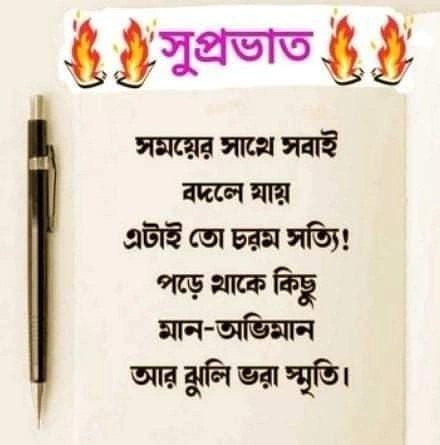 সুপ্রভাত
সময়ের সাথে সবাই
বদলে যায়
এটাই তো চরম সত্যি!
পড়ে থাকে কিছু
মান-অভিমান
আর ঝুলি ভরা স্মৃতি।